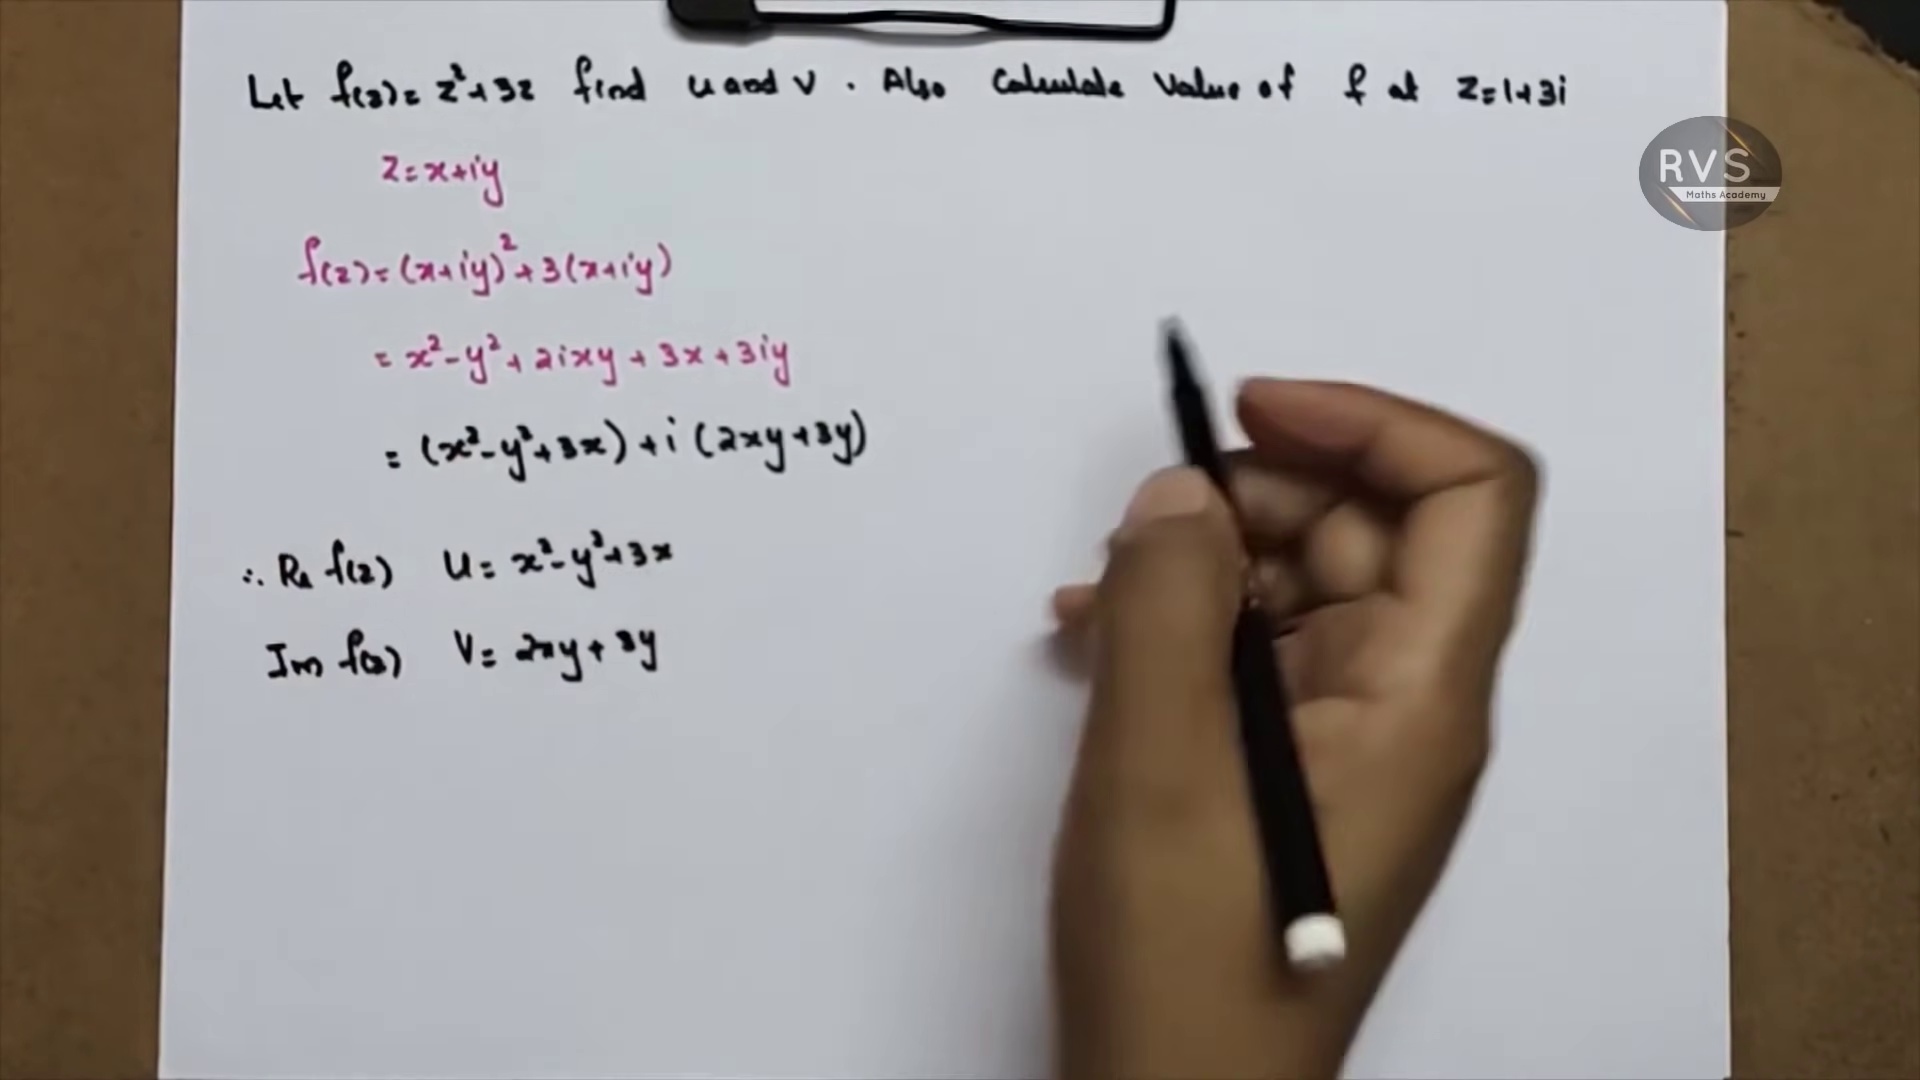 Let f(z) = z² + 3z find u and v . Also Calculate Value of f at z = 1 + 3i
RVS
Maths Academy
z = x + iy
f(z) = (x + iy)² + 3(x + iy)
= x² - y² + 2ixy + 3x + 3iy
= (x² - y² + 3x) + i (2xy + 3y)
∴ Re f(z) u = x² - y² + 3x
Im f(z) v = 2xy + 3y